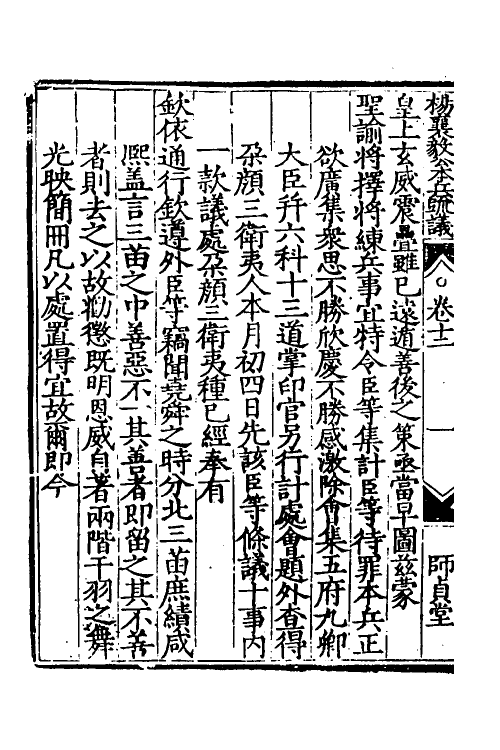 楊襄毅公本兵疏議 卷十二 一 師貞堂
皇上玄威震疊雖已遠遁善後之策亟當早圖茲蒙
聖諭將擇將練兵事宜特令臣等集計臣等待罪本兵正
欲廣集衆思不勝欣慶不勝感激除會集五府九卿
大臣幷六科十三道掌印官另行計處會題外查得
朶顔三衛夷人本月初四日先該臣等條議十事內
一款議處朶顔三衛夷種已經奉有
欽依通行欽遵外臣等竊聞堯舜之時分北三苗庶績咸
熙盖言三苗之中善惡不一其善者即留之其不善
者則去之以故勸懲既明恩威自著兩階干羽之舞
光映簡冊凡以處置得宜故爾即今